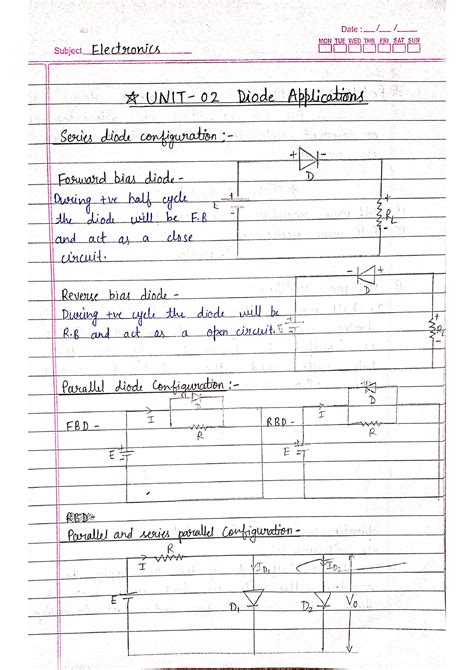 Date : __/__/__
MON TUE WED THR FRI SAT SUN
Subject Electronics
☆ UNIT-02 Diode Applications
Series diode configuration :-
Forward bias diode -
During +ve half cycle
the diode will be F.B
and act as a close
circuit.
+ -
D
E
+
RL
-
Reverse bias diode -
During +ve cycle the diode will be
R.B and act as a open circuit.
- +
D
E
+
RL
-
Parallel diode Configuration :-
FBD -
I
D
R
E
RBD -
I
D
R
E
RBD -
Parallel and series parallel Configuration -
R
I
E
ID1
ID2
D1
D2
Vo